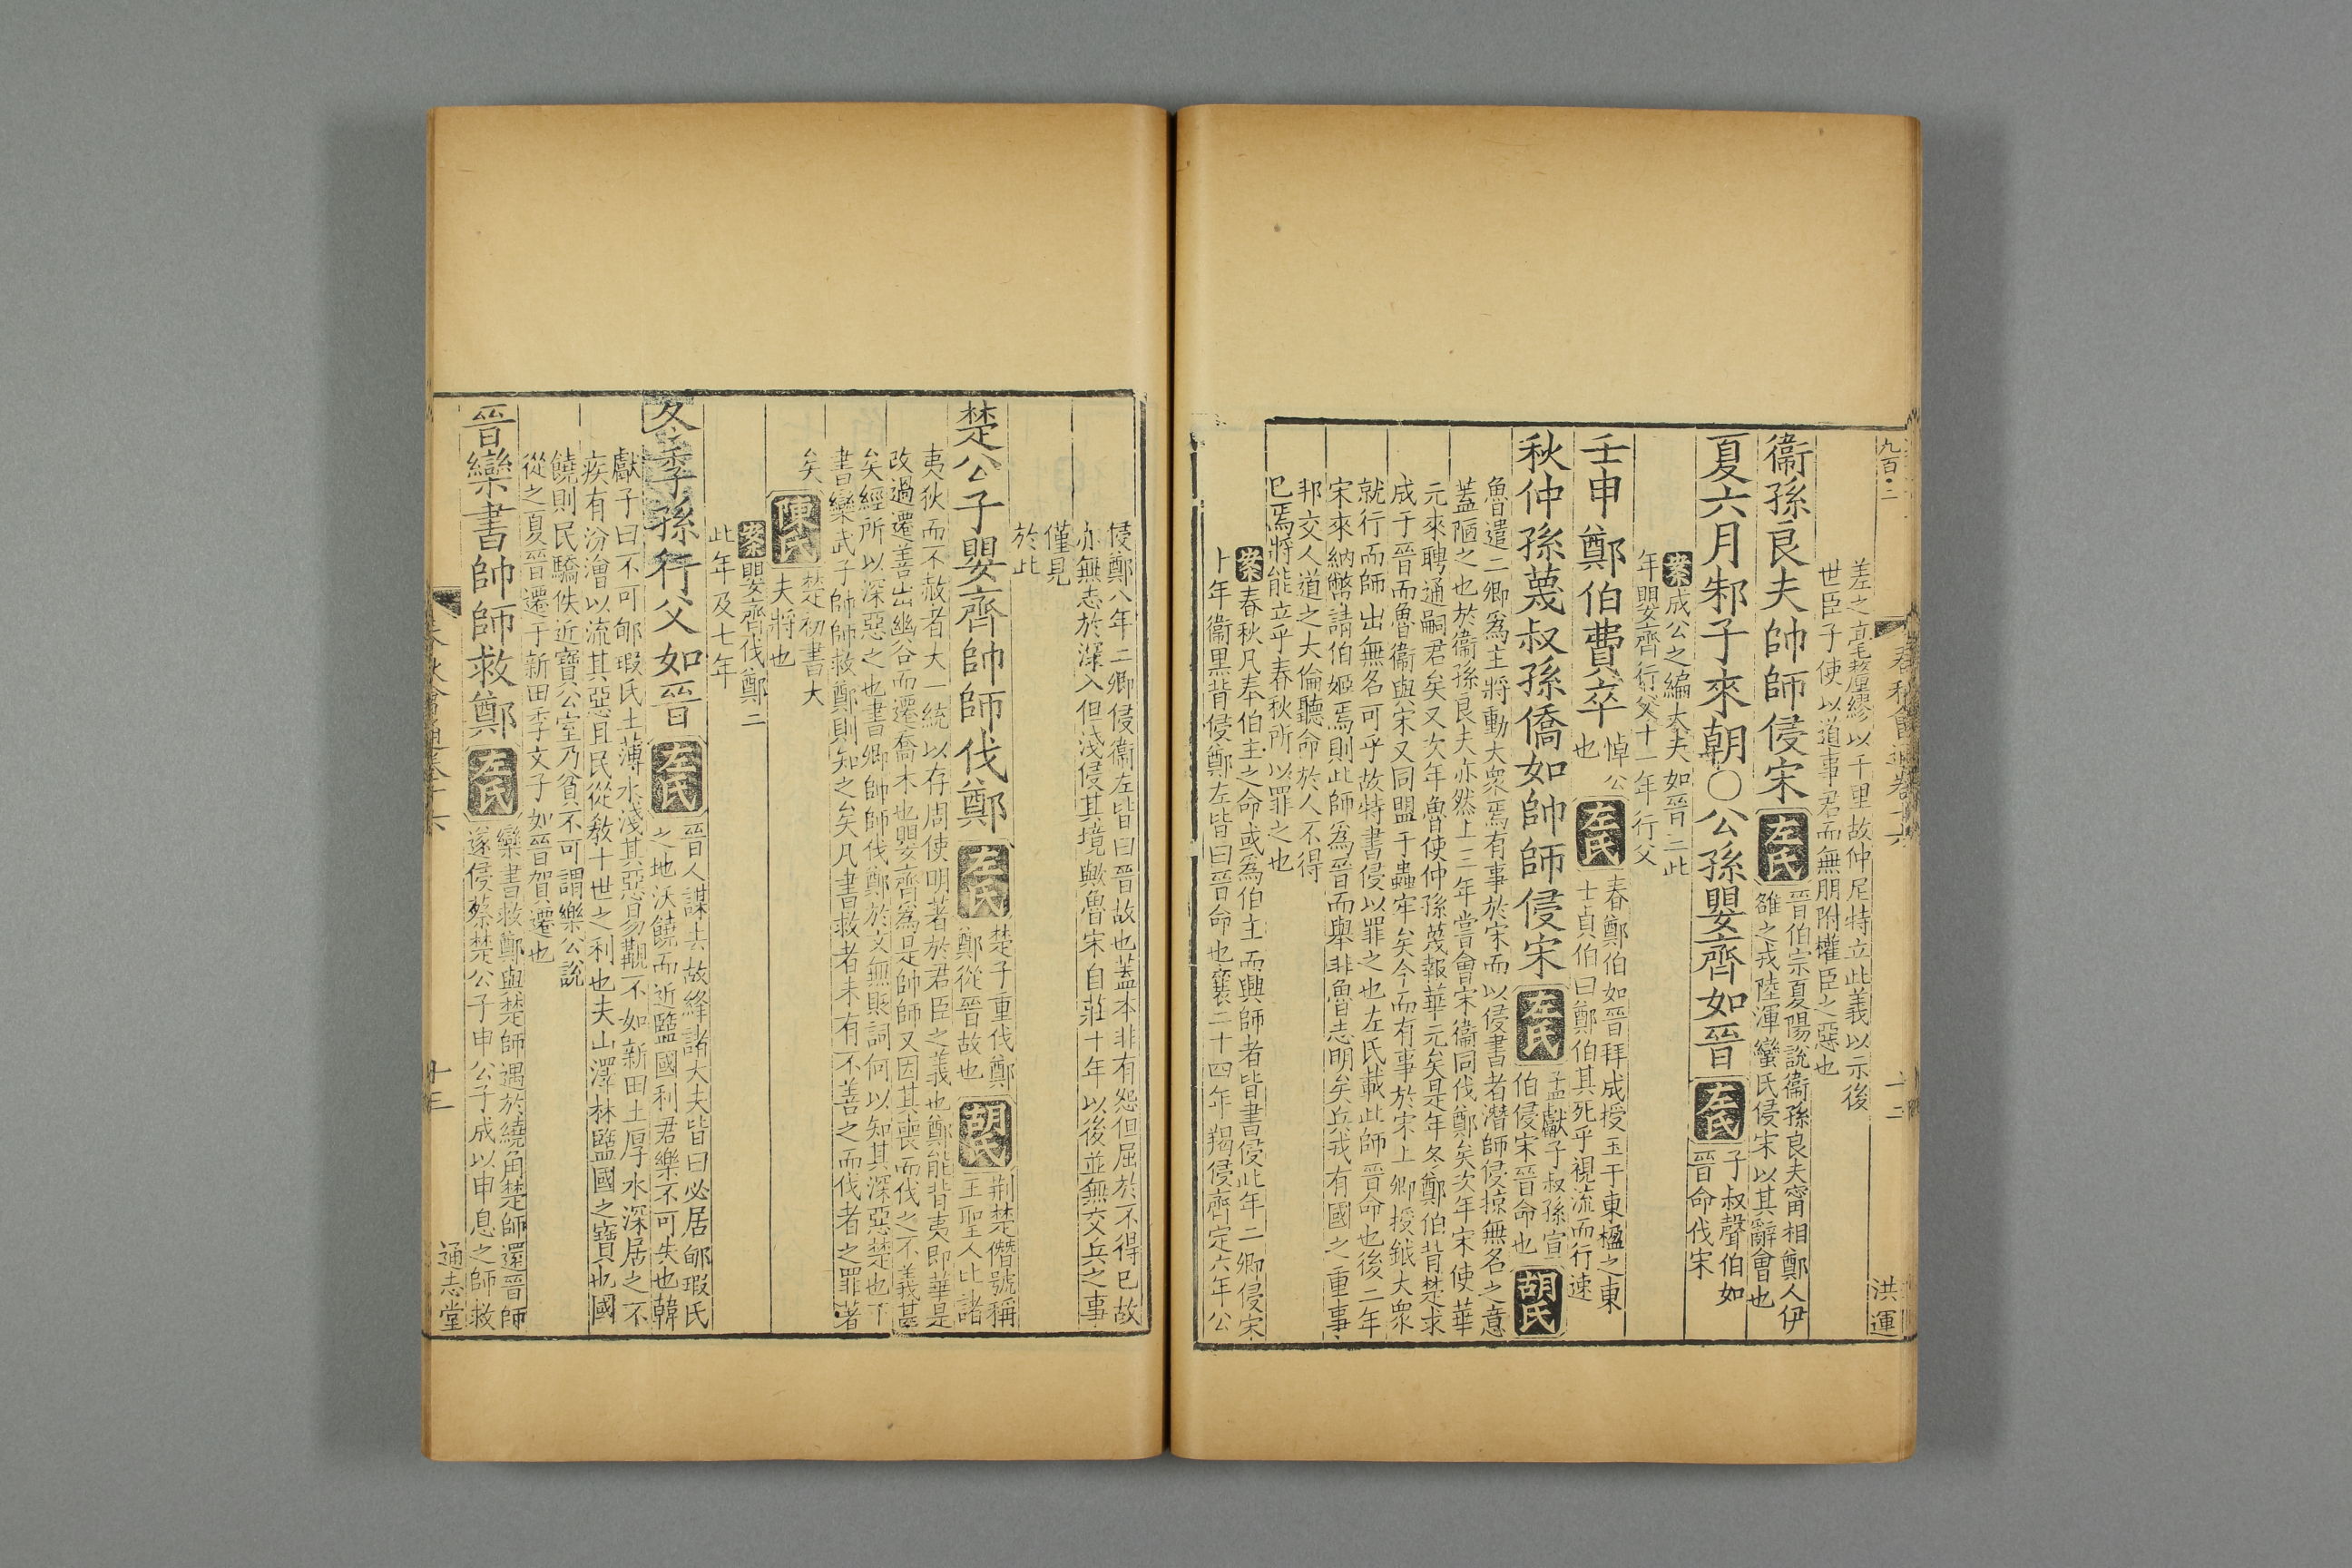 九百二
春秋會通卷十六
洪運
差之毫釐繆以千里故仲尼特立此義以示後
世臣子使以道事君而無朋附權臣之惡也
衞孫良夫帥師侵宋
左氏
晉伯宗夏陽說衞孫良夫甯相鄭人伊
雒之戎陸渾蠻氏侵宋以其辭會也
夏六月邾子來朝○公孫嬰齊如晉
左氏
子叔聲伯如
晉命伐宋
案成公之編大夫如晉二此
年嬰齊行父十一年行父
壬申鄭伯費卒
悼公
也
左氏
春鄭伯如晉拜成授玉于東楹之東
士貞伯曰鄭伯其死乎視流而行速
秋仲孫蔑叔孫僑如帥師侵宋
左氏
孟獻子叔孫宣
伯侵宋晉命也
胡氏
魯遣二卿爲主將動大衆焉有事於宋而以侵書者潛師侵掠無名之意
蓋陋之也於衞孫良夫亦然上三年嘗會宋衞同伐鄭矣次年宋使華
元來聘通嗣君矣又次年魯使仲孫蔑報華元矣是年冬鄭伯背楚求
成于晉而魯衞與宋又同盟于蟲牢矣今而有事於宋上卿授鉞大衆
就行而師出無名可乎故特書侵以罪之也左氏載此師晉命也後二年
宋來納幣請伯姬焉則此師爲晉而舉非魯志明矣兵戎有國之重事
邦交人道之大倫聽命於人不得
已焉將能立乎春秋所以罪之也
案春秋凡奉伯主之命或爲伯主而興師者皆書侵此年二卿侵宋
十年衞黑背侵鄭左皆曰晉命也襄二十四年羯侵齊定六年公
侵鄭八年二卿侵衞左皆曰晉故也蓋本非有怨但屈於不得已故
亦無志於深入但淺侵其境歟魯宋自莊十年以後並無交兵之事
僅見
於此
楚公子嬰齊帥師伐鄭
左氏
楚子重伐鄭
鄭從晉故也
胡氏
荆楚僭號稱
王聖人比諸
夷狄而不赦者大一統以存周使明著於君臣之義也鄭能背夷即華是
改過遷善出幽谷而遷喬木也嬰齊爲是帥師又因其喪而伐之不義甚
矣經所以深惡之也書卿帥師伐鄭於文無貶詞何以知其深惡楚也下
書欒武子帥師救鄭則知之矣凡書救者未有不善之而伐者之罪著
矣
陳氏
楚初書大
夫將也
案嬰齊伐鄭二
此年及七年
冬季孫行父如晉
左氏
晉人謀去故絳諸大夫皆曰必居郇瑕氏
之地沃饒而近盬國利君樂不可失也韓
獻子曰不可郇瑕氏土薄水淺其惡易覯不如新田土厚水深居之不
疾有汾澮以流其惡且民從教十世之利也夫山澤林盬國之寶也國
饒則民驕佚近寶公室乃貧不可謂樂公說
從之夏晉遷于新田季文子如晉賀遷也
晉欒書帥師救鄭
左氏
欒書救鄭與楚師遇於繞角楚師還晉師
遂侵蔡楚公子申公子成以申息之師救
十三
通志堂